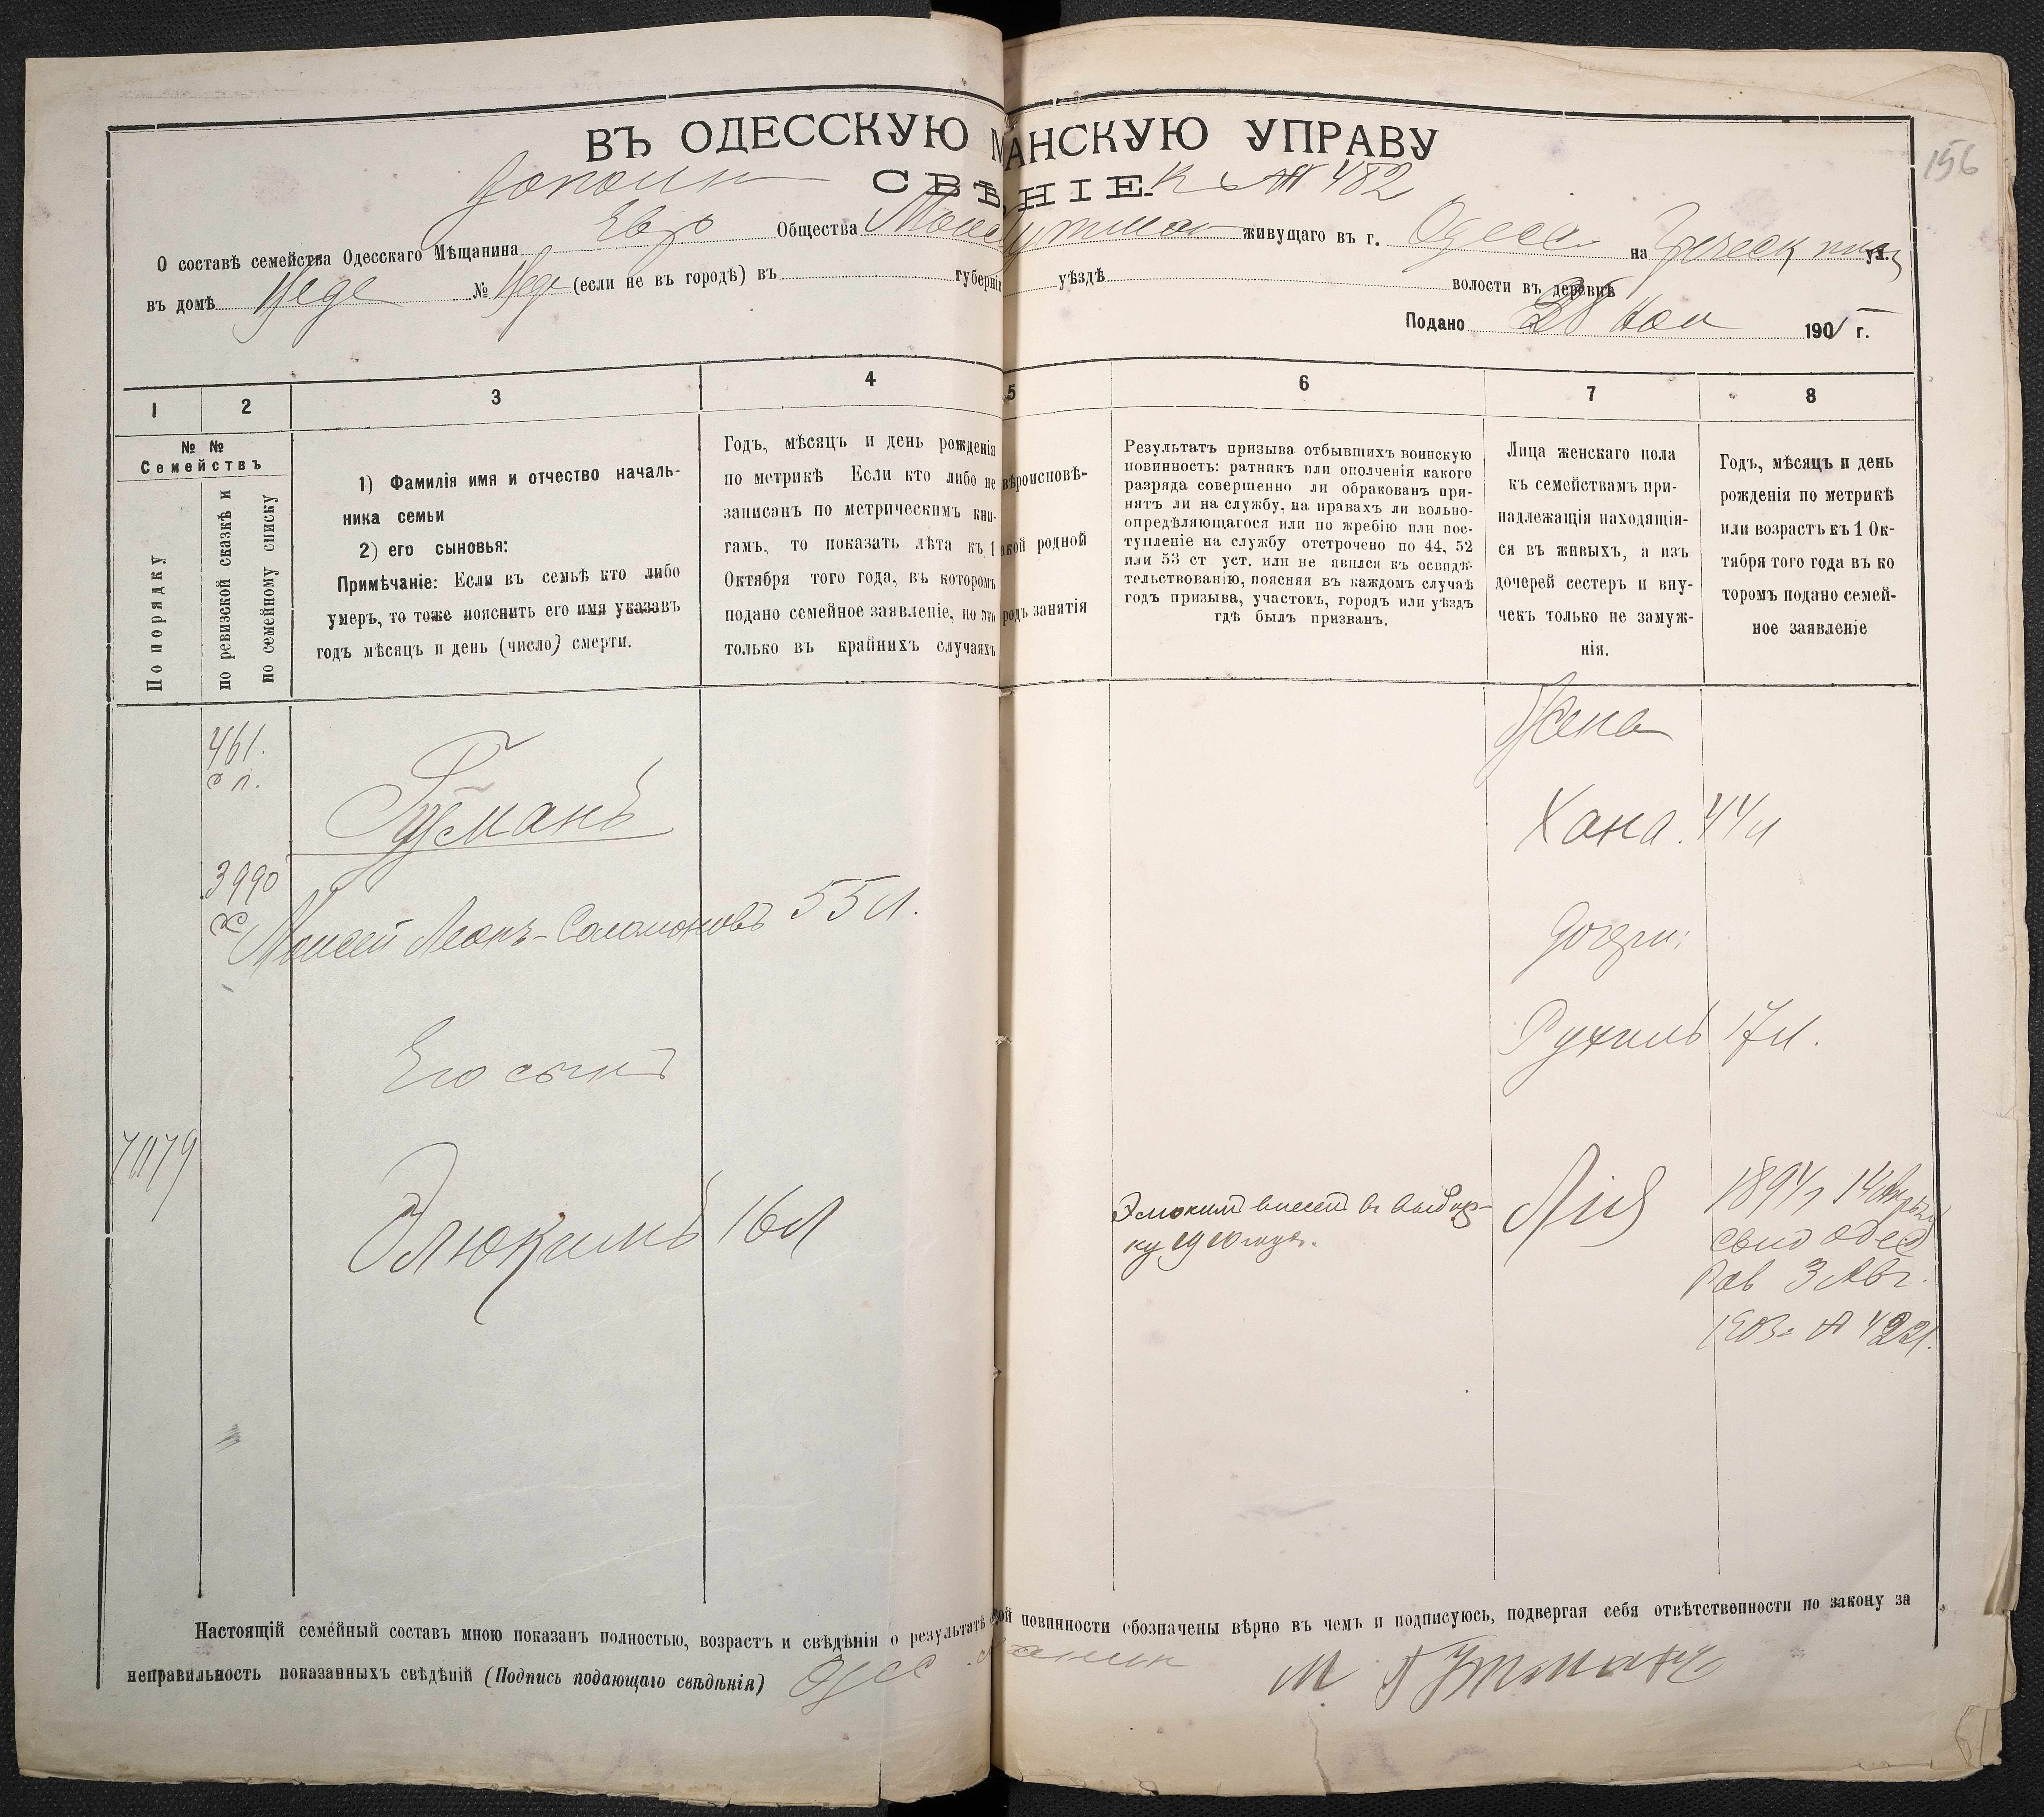 156
ВЪ ОДЕССКУЮ МАНСКУЮ УПРАВУ
Дополн СВѢ НІЕ. къ № 482
О составѣ семейства Одесскаго Мѣщанина Евр Общества живущаго въ г. Одесса на Греческ ул.
въ домѣ № (если не въ городѣ) въ губерніи уѣздѣ волости въ деревнѣ
Подано 28 Ноя 1905 г.
1 2 3 4 5 6 7 8
№ №
Семействъ
По порядку
по ревизской сказкѣ и
по семейному списку
1) Фамилія имя и отчество началь-
ника семьи
2) его сыновья:
Примѣчаніе: Если въ семьѣ кто либо
умеръ, то тоже пояснить его имя указавъ
годъ мѣсяцъ и день (число) смерти.
Годъ, мѣсяцъ и день рожденія
по метрикѣ Если кто либо не
записанъ по метрическимъ кни-
гамъ, то показать лѣта къ 1
Октября того года, въ которомъ
подано семейное заявленіе, но это
только въ крайнихъ случаяхъ
вѣроисповѣ-
акой родной
родъ занятія
Результатъ призыва отбывшихъ воинскую
повинность: ратникъ или ополченія какого
разряда совершенно ли обракованъ при-
нятъ ли на службу, на правахъ ли вольно-
опредѣляющагося или по жребію или пос-
тупленіе на службу отстрочено по 44, 52
или 53 ст уст. или не явился къ освидѣ-
тельствованію, поясняя въ каждомъ случаѣ
годъ призыва, участокъ, городъ или уѣздъ
гдѣ былъ призванъ.
Лица женскаго пола
къ семействамъ при-
надлежащія находящія-
ся въ живыхъ, а изъ
дочерей сестеръ и вну-
чекъ только не замуж-
нія.
Годъ, мѣсяцъ и день
рожденія по метрикѣ
или возрастъ къ 1 Ок-
тября того года въ ко
торомъ подано семей-
ное заявленіе
461.
с п.
Гутманъ
3990
Моисей Леонъ-Соломоновъ 55 л.
Его сынъ
7079
Элюкимъ 16 л
Элюкимъ внесен в выбор-
ку 1910 года.
Жена
Хана. 44 л
Дочери:
Рухиль 17 л.
Лія 1894 г 14 Апрѣля
свид Одес
Рав 3 Авг.
1903 г № 4221.
Настоящій семейный составъ мною показанъ полностью, возрастъ и свѣдѣнія о результатѣ ской повинности обозначены вѣрно въ чемъ и подписуюсь, подвергая себя отвѣтственности по закону за
неправильность показанныхъ свѣдѣній (Подпись подающаго свѣдѣнія) Одес М Гутманъ